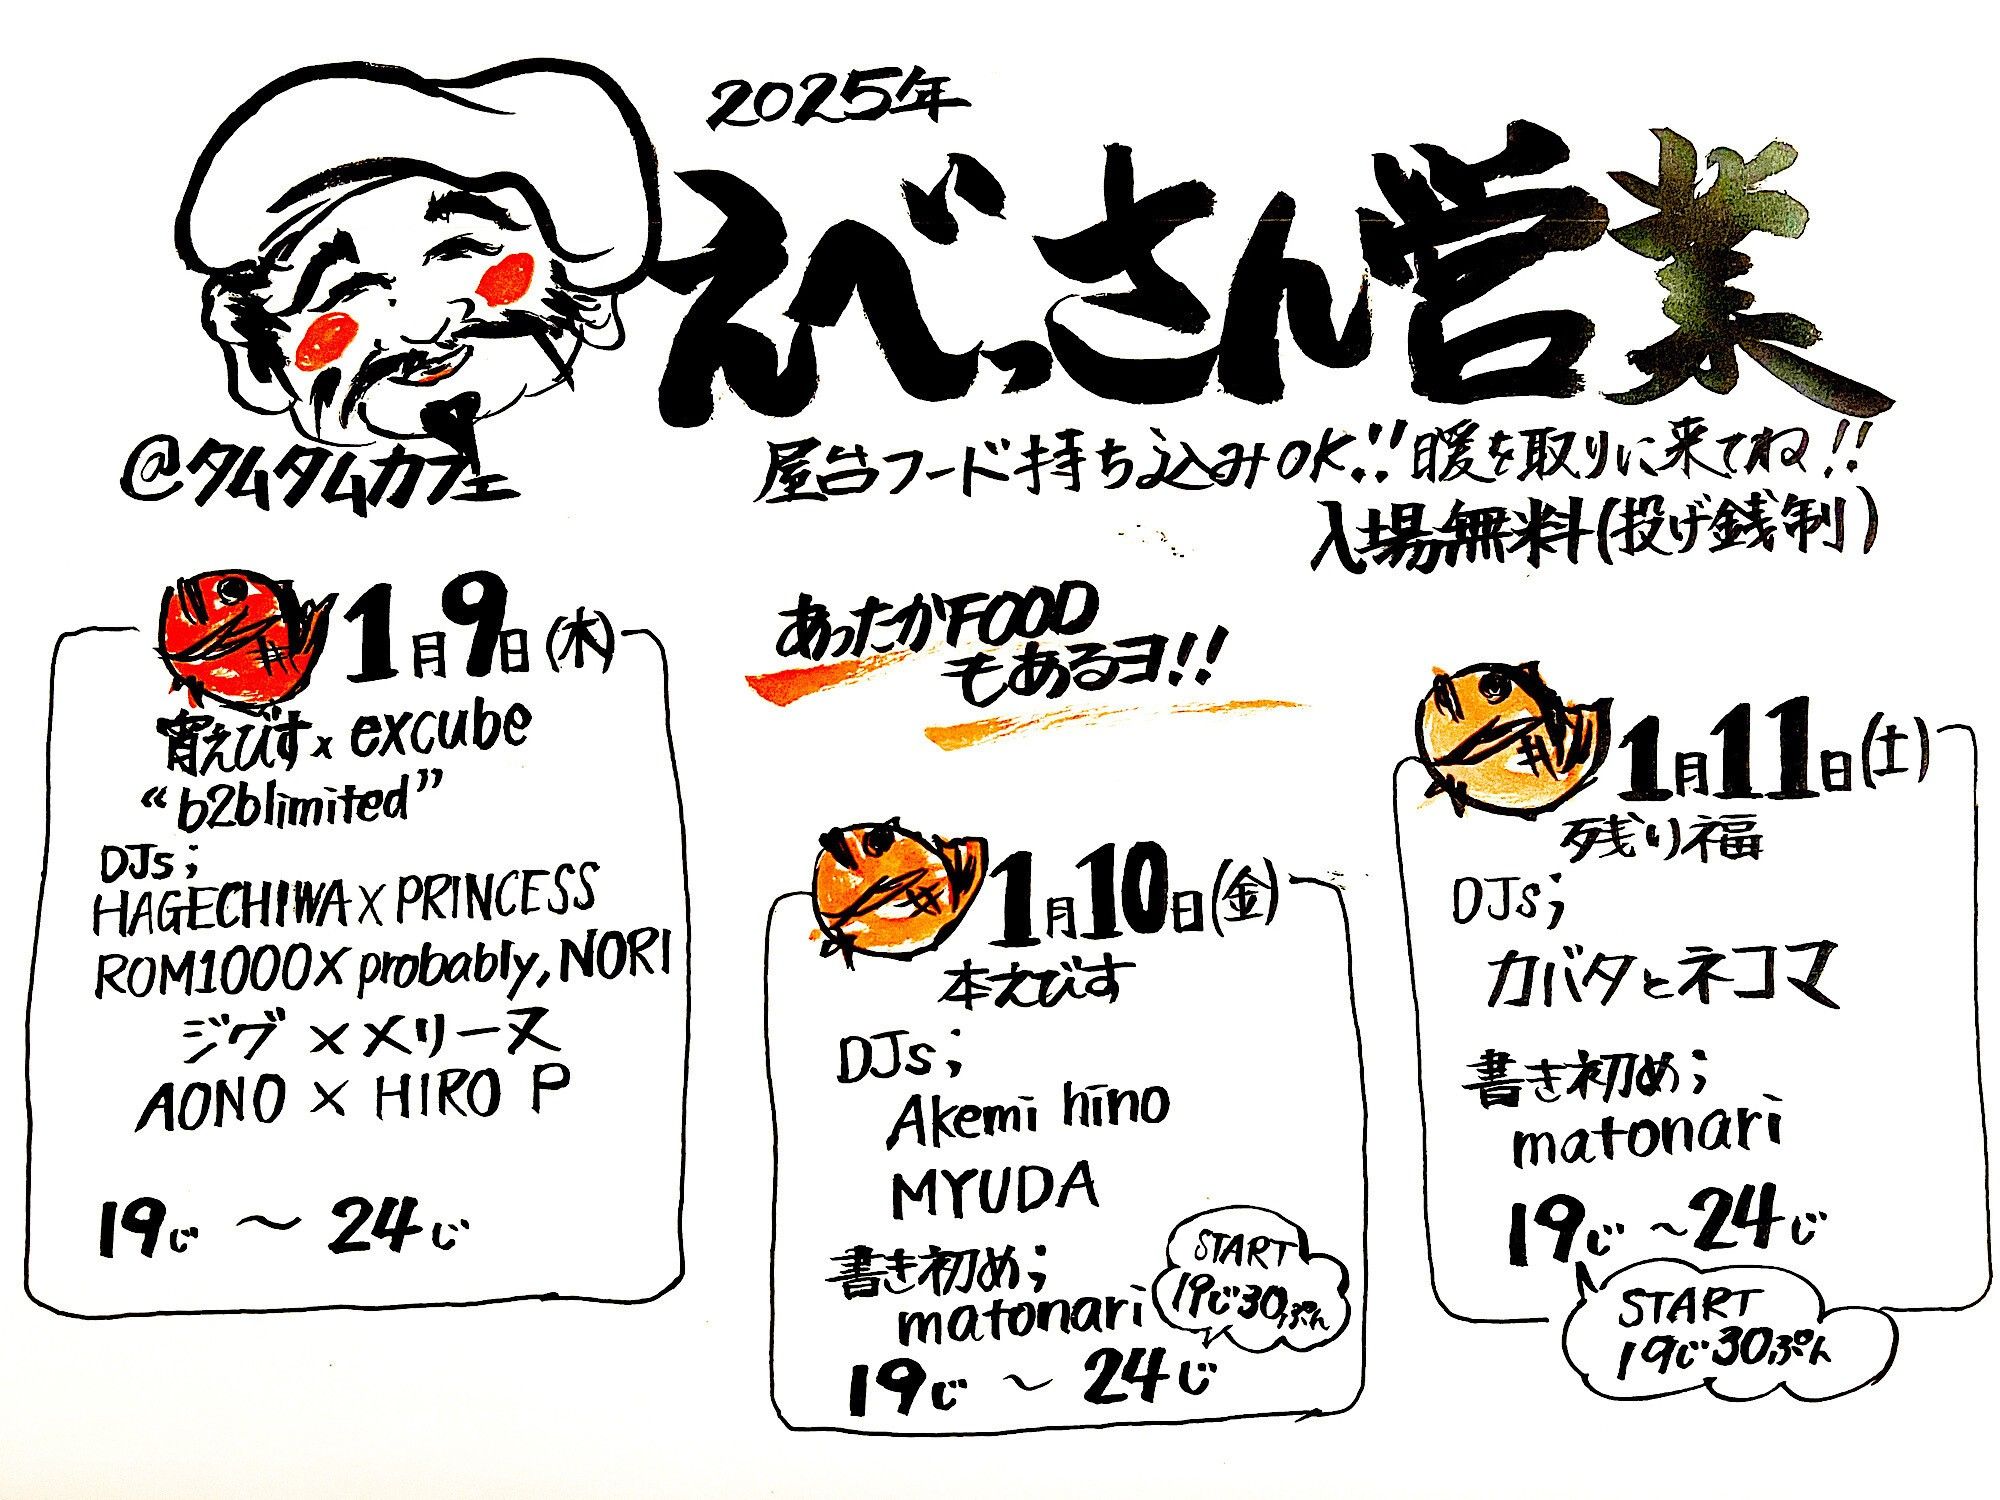 2025年
えべっさん営業
@タムタムカフェ
屋台フード持ち込みOK!!暖を取りに来てね!!
入場無料(投げ銭制)
あったかFOOD
もあるヨ!!
1月9日(木)
宵えびす x excube
“b2blimited”
DJs;
HAGECHIWA X PRINCESS
ROM1000 X probably, NORI
ジグ × メリーヌ
AONO × HIRO P
19じ 〜 24じ
1月10日(金)
本えびす
DJs;
Akemi hino
MYUDA
書き初め;
matonari
START
19じ30ぷん
19じ 〜 24じ
1月11日(土)
残り福
DJs;
カバタとネコマ
書き初め;
matonari
19じ 〜 24じ
START
19じ30ぷん